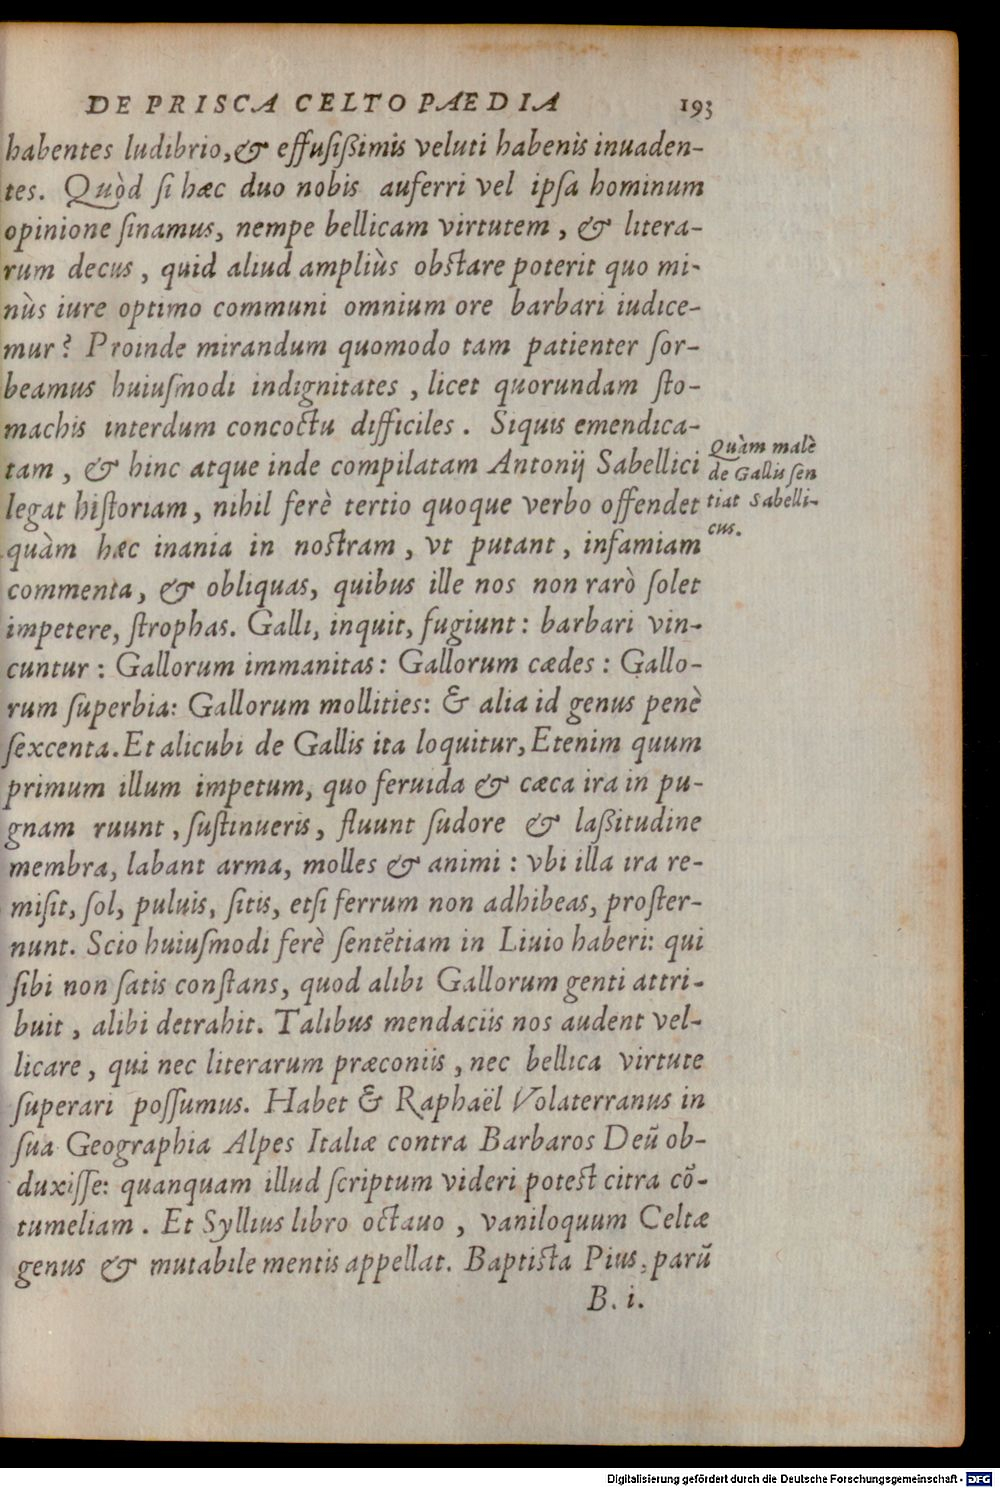 DE PRISCA CELTOPAEDIA 193
habentes ludibrio, & effusißimis veluti habenis inuaden-
tes. Quòd si hæc duo nobis auferri vel ipsa hominum
opinione sinamus, nempe bellicam virtutem, & litera-
rum decus, quid aliud ampliùs obstare poterit quo mi-
nùs iure optimo communi omnium ore barbari iudice-
mur? Proinde mirandum quomodo tam patienter sor-
beamus huiusmodi indignitates, licet quorundam sto-
machis interdum concoctu difficiles. Siquis emendica-
tam, & hinc atque inde compilatam Antonij Sabellici
legat historiam, nihil ferè tertio quoque verbo offendet
quàm hæc inania in nostram, vt putant, infamiam
commenta, & obliquas, quibus ille nos non rarò solet
impetere, strophas. Galli, inquit, fugiunt: barbari vin-
cuntur: Gallorum immanitas: Gallorum cædes: Gallo-
rum superbia: Gallorum mollities: & alia id genus penè
sexcenta. Et alicubi de Gallis ita loquitur, Etenim quum
primum illum impetum, quo feruida & cæca ira in pu-
gnam ruunt, sustinueris, fluunt sudore & laßitudine
membra, labant arma, molles & animi: vbi illa ira re-
misit, sol, puluis, sitis, etsi ferrum non adhibeas, proster-
nunt. Scio huiusmodi ferè sentētiam in Liuio haberi: qui
sibi non satis constans, quod alibi Gallorum genti attri-
buit, alibi detrahit. Talibus mendaciis nos audent vel-
licare, qui nec literarum præconiis, nec bellica virtute
superari possumus. Habet & Raphaël Volaterranus in
sua Geographia Alpes Italiæ contra Barbaros Deũ ob-
duxisse: quanquam illud scriptum videri potest citra cõ-
tumeliam. Et Syllius libro octauo, vaniloquum Celtæ
genus & mutabile mentis appellat. Baptista Pius, parũ
B. i.
Quàm malè
de Gallis sen
tiat Sabelli-
cus.
Digitalisierung gefördert durch die Deutsche Forschungsgemeinschaft - DFG